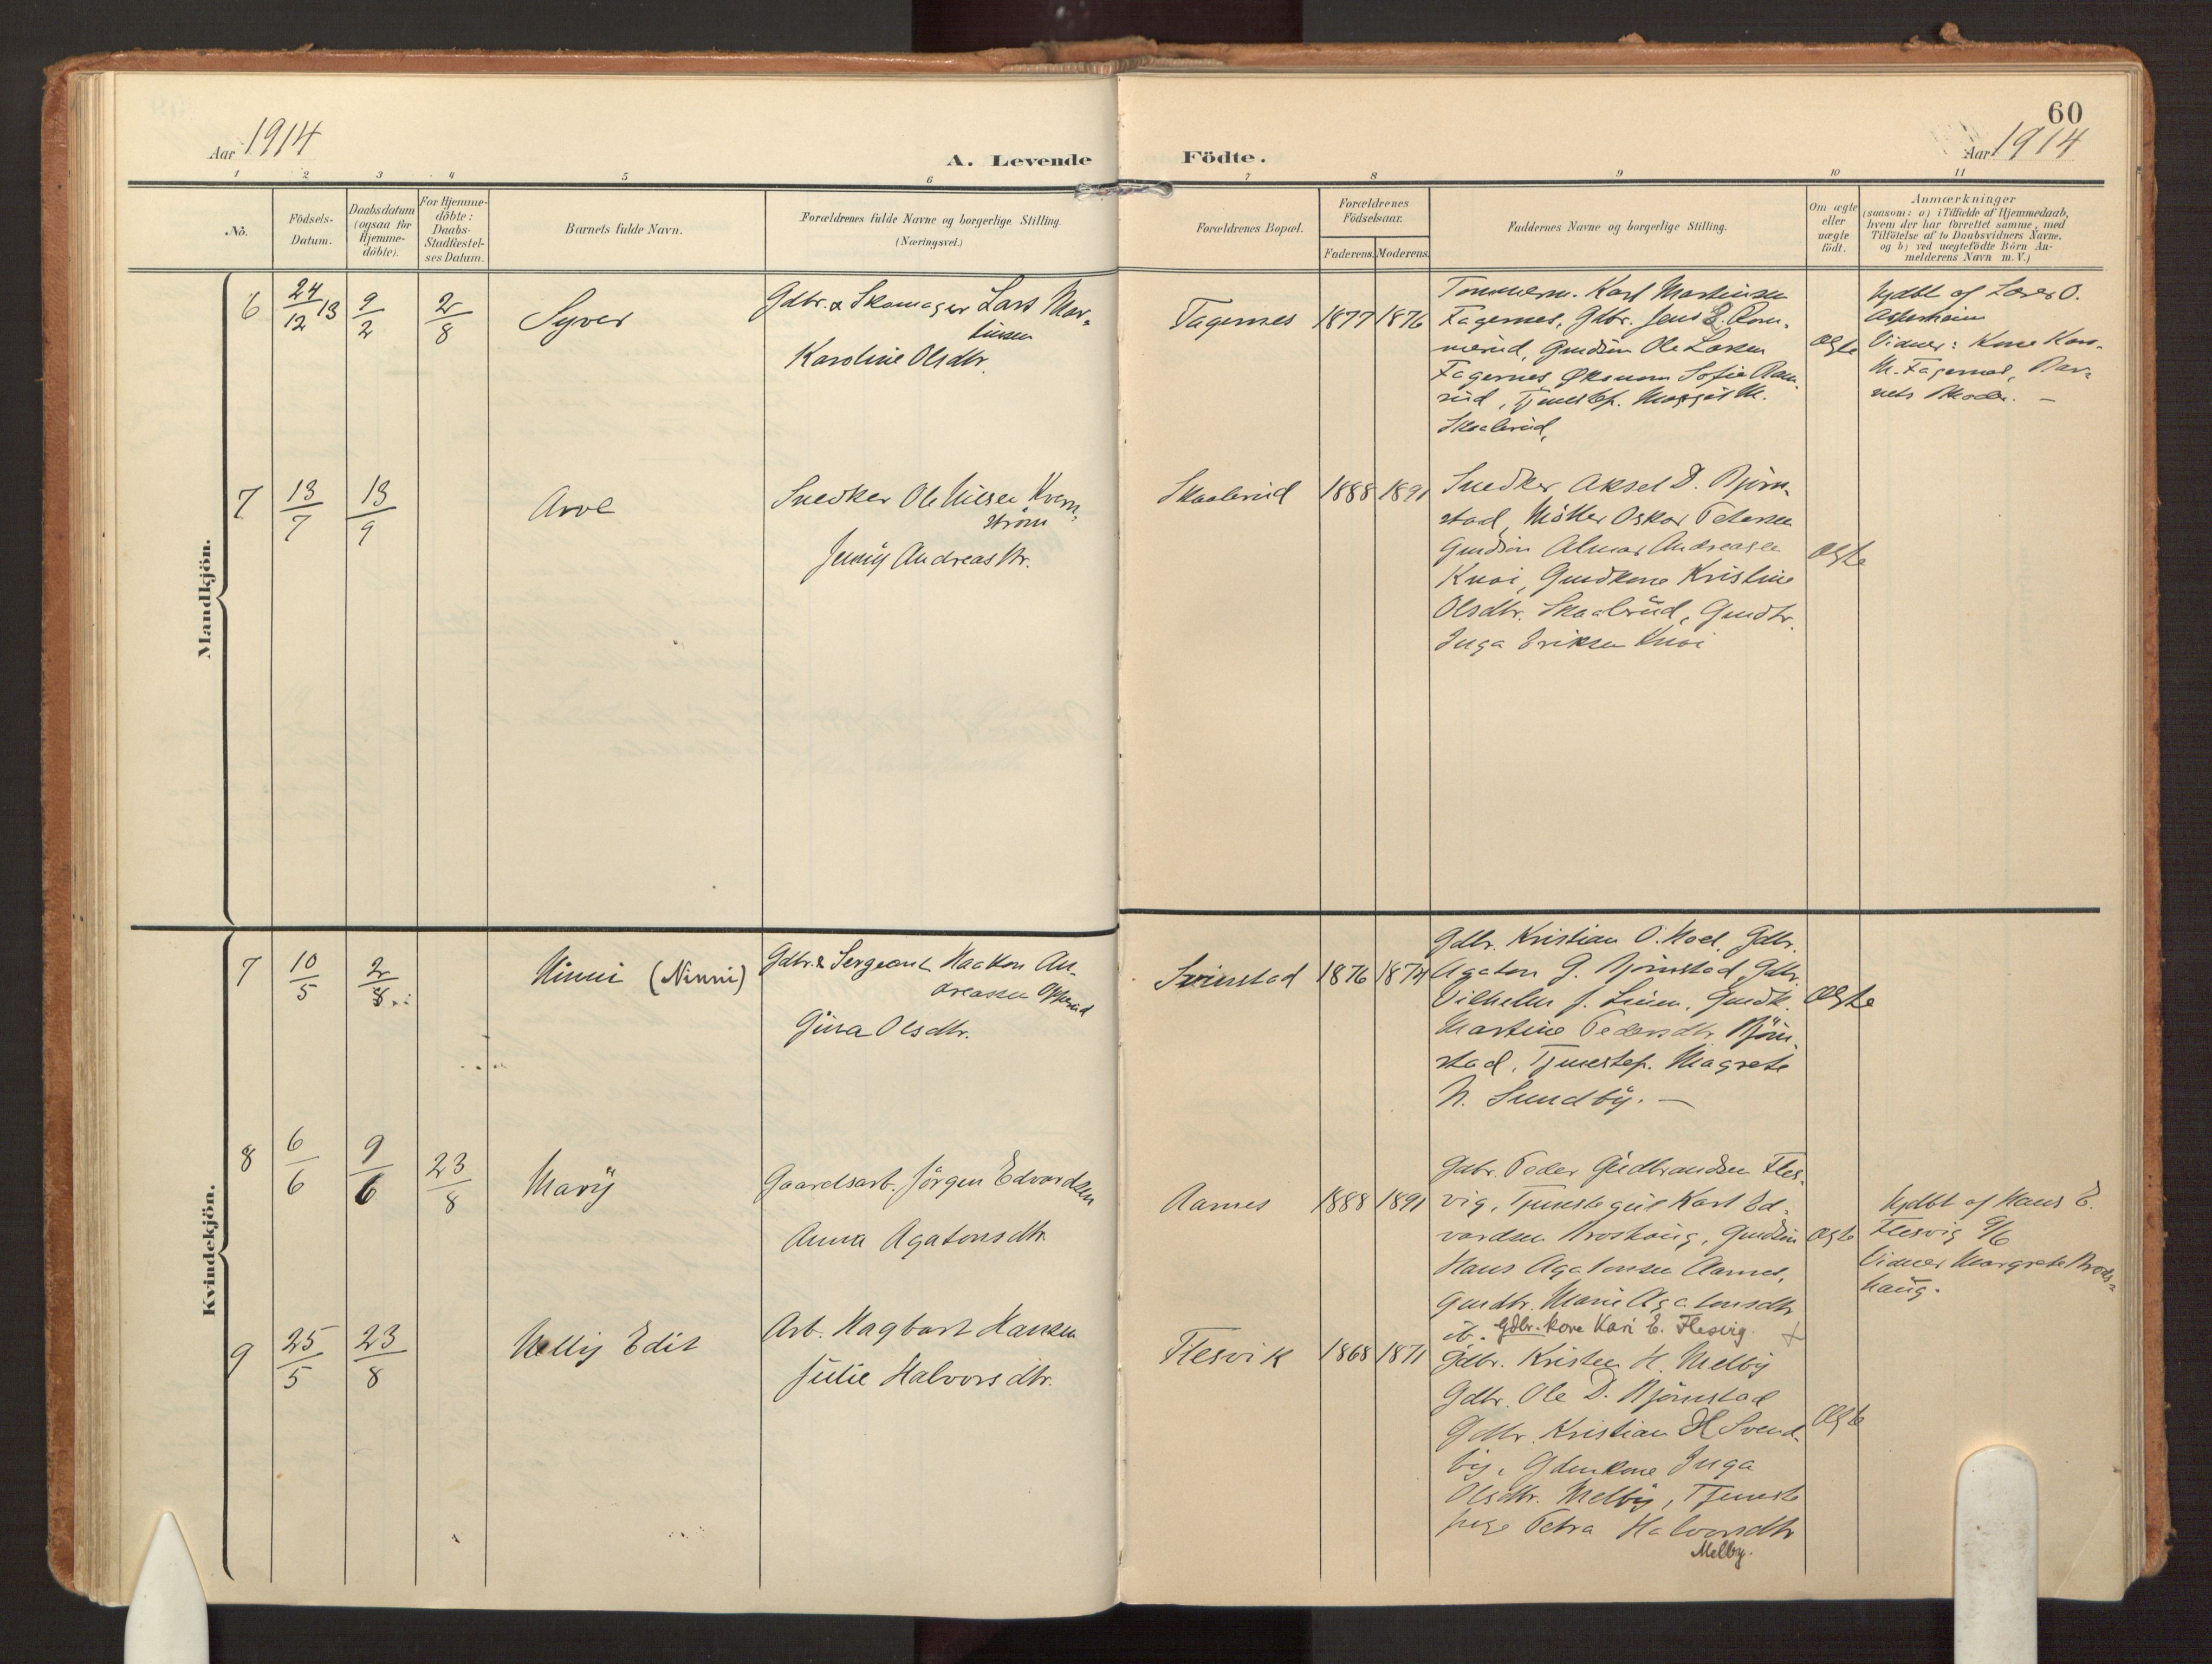 60
Aar 1914
A. Levende Födte.
Aar 1914
1 2 3 4 5 6 7 8 9 10 11
No.
Födsels-
Datum.
Daabsdatum
(ogsaa for
Hjemme-
döbte).
For Hjemme-
döbte:
Daabs-
Stadfæstel-
ses Datum.
Barnets fulde Navn.
Forældrenes fulde Navne og borgerlige Stilling.
(Næringsvei.)
Forældrenes Bopæl.
Forældrenes
Födselsaar.
Faderens. Moderens.
Faddernes Navne og borgerlige Stilling.
Om ægte
eller
uægte
födt.
Anmærkninger
(saasom: a) i Tilfælde af Hjemmedaab,
hvem der har forrettet samme, med
Tilföielse af to Daabsvidners Navne,
og b) ved uægtefödte Börn An-
melderens Navn m. V.)
Mandkjön.
6
24/12 13
9/2
2/8
Syver
Gdbr. & Skomager Lars Mar-
tinsen
Karoline Olsdtr.
Fagernes
1877 1876
Tømmerm. Karl Martinsen
Fagernes, Gdbr. Jens L. Rom-
merud, Gmdsøn Ole Larsen
Fagernes, Økonom Sofie Aam-
rud, Tjenestep. M.
Skaalerud,
Ægte
hjdbt af Lærer O.
Vidner: Kone Kar.
M. Fagernes, Bar-
nets Moder. —
7
13/7
13/9
Arve
Snedker Ole Nilsen Kvern-
strøm
Jenny Andreasdtr.
Skaalerud
1888 1891
Snedker Aksel D. Björn-
stad, Möller Oskar Petersen
Gmdsøn Almar Andreasen
Knai, Gmdkone Kristine
Olsdtr. Skaalrud, Gmdtr.
Inga Eriksen Knai
Ægte
Kvindekjön.
7
10/5
2/8
Ninni (Ninni)
Gdbr. & Sergeant Haakon An-
dreassen Opperud
Gina Olsdtr.
Svinstad
1876 1874
Gdbr. Kristian O. Hoel, Gdbr.
Agaton G. Björnstad, Gdbr.
Vilhelm J. Lunn, Gmdk.
Martine Pedersdtr. Björn-
stad, Tjenestep. Magrete
N. Sundby. —
Ægte
8
6/6
9/6
23/8
Mary
Gaardsarb. Jörgen Edvardsen
Anna Agatonsdtr.
Aarnes
1888 1891
Gdbr. Peder Gudbrandsen Fles-
vig, Tjenestegut Karl Ed-
vardsen Broshaug, Gmdsøn
Hans Agatonsen Aarnes,
Gmdtr. Marie Agatonsdtr
ib. Gdbr. kone Kari E. Flesvig. +
Ægte
hjdbt af Hans E.
Flesvig 9/6
Vidner Margrete Bros-
haug.
9
25/5
23/8
Nelly Edit
Arb. Hagbart Hansen
Julie Halvorsdtr.
Flesvik
1868 1871
Gdbr. Kristen H. Melby
Gdbr. Ole D. Björnstad
Gdbr. Kristian H Svend-
by, Gdmkone Inga
Olsdtr. Melby, Tjeneste
pige Petra Halvorsdtr
Melby.
Ægte